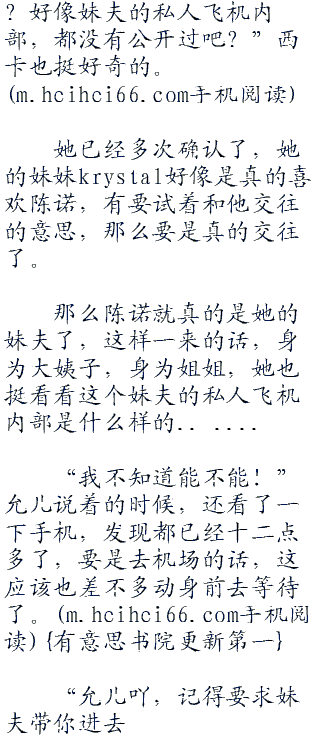 ？好像妹夫的私人飞机内
部，都没有公开过吧？”西
卡也挺好奇的。
(m.hcihci66.com手机阅读)
她已经多次确认了，她
的妹妹krystal好像是真的喜
欢陈诺，有要试着和他交往
的意思，那么要是真的交往
了。
那么陈诺就真的是她的
妹夫了，这样一来的话，身
为大姨子，身为姐姐，她也
挺看看这个妹夫的私人飞机
内部是什么样的.. ....
“我不知道能不能！”
允儿说着的时候，还看了一
下手机，发现都已经十二点
多了，要是去机场的话，这
应该也差不多动身前去等待
了。(m.hcihci66.com手机阅
读){有意思书院更新第一}
“允儿吖，记得要求妹
夫带你进去